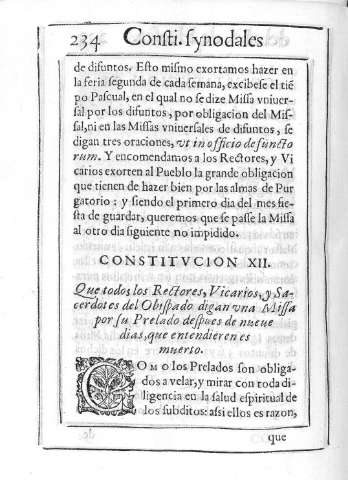 234 Consti. synodales
de difuntos. Esto mismo exortamos hazer en
la feria segunda de cada semana, excibese el tiẽ
po Pascual, en el qual no se dize Missa vniuer-
sal por los difuntos, por obligacion del Mis-
sal, ni en las Missas vniuersales de difuntos, se
digan tres oraciones, vt in officio defuncto
rum. Y encomendamos a los Rectores, y Vi
carios exorten al Pueblo la grande obligacion
que tienen de hazer bien por las almas de Pur
gatorio: y siendo el primero dia del mes fie-
sta de guardar, queremos que se passe la Missa
al otro dia siguiente no impidido.
CONSTITVCION XII.
Que todos los Rectores, Vicarios, y Sa-
cerdotes del Obispado digan vna Missa
por su Prelado despues de nueue
dias, que entendieren es
muerto.
COMO los Prelados son obliga-
dos a velar, y mirar con toda di-
ligencia en la salud espiritual de
los subditos: assi ellos es razon,
que